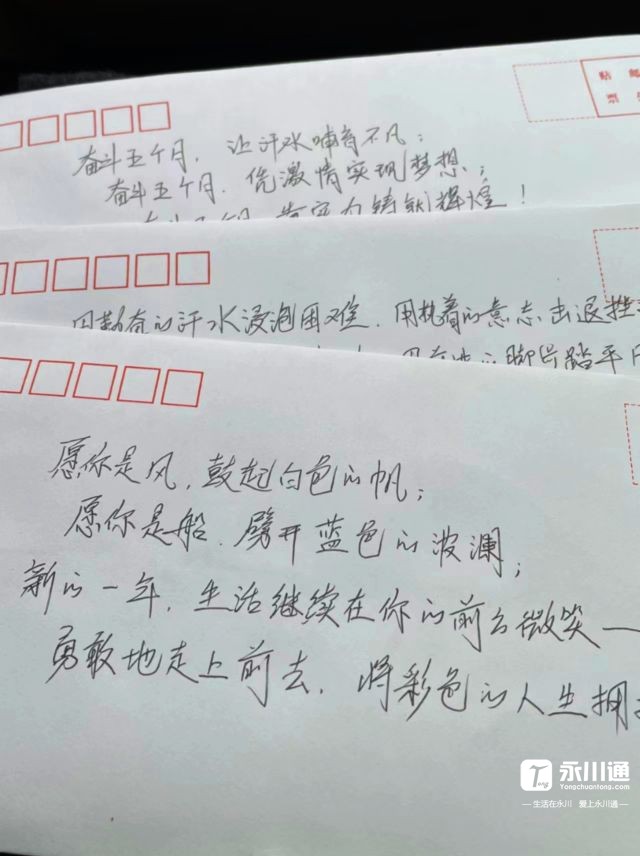 贴 邮
票
奋斗五个月，让汗水哺育不凡；
奋斗五个月，凭激情实现梦想；
铸就辉煌！
用勤奋的汗水浸泡困难，用执着的意志击退挫
的脚片踏平
愿你是风，鼓起白色的帆；
愿你是船，劈开蓝色的波澜；
新的一年，生活继续在你的前方微笑—
勇敢地走上前去，将彩色的人生拥
永川通
Yongchuantong.com
生活在永川 爱上永川通